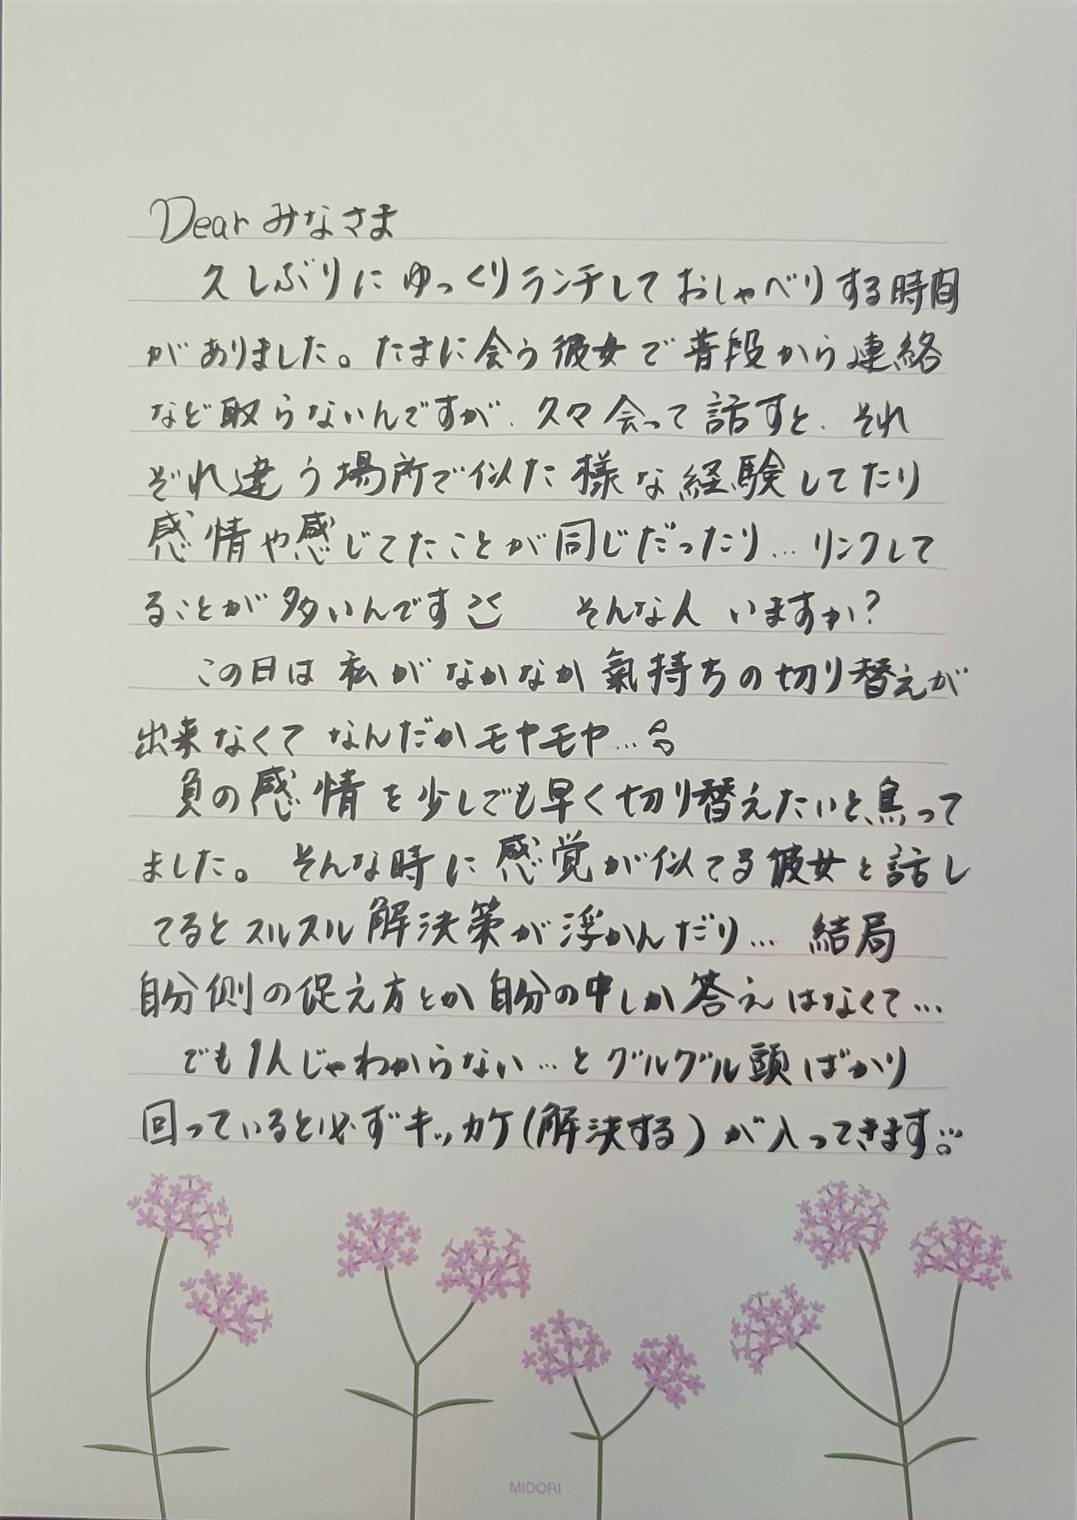 Dear みなさま
久しぶりに ゆっくりランチして おしゃべりする時間
がありました。たまに会う彼女で普段から連絡
など取らないんですが、久々会って話すと、それ
ぞれ違う場所で似た様な経験してたり
感情や感じてたことが同じだったり…リンクして
ることが多いんです そんな人 いますか?
この日は 私が なかなか氣持ちの切り替えが
出来なくて なんだかモヤモヤ…
負の感情を少しでも早く切り替えたいと、焦って
ました。そんな時に感覚が似てる彼女と話し
てるとスルスル解決策が浮かんだり… 結局
自分側の促え方とか自分の中しか答えはなくて…
でも1人じゃわからない…とグルグル頭ばかり
回っていると必ずキッカケ(解決する)が入ってきます。
MIDORI